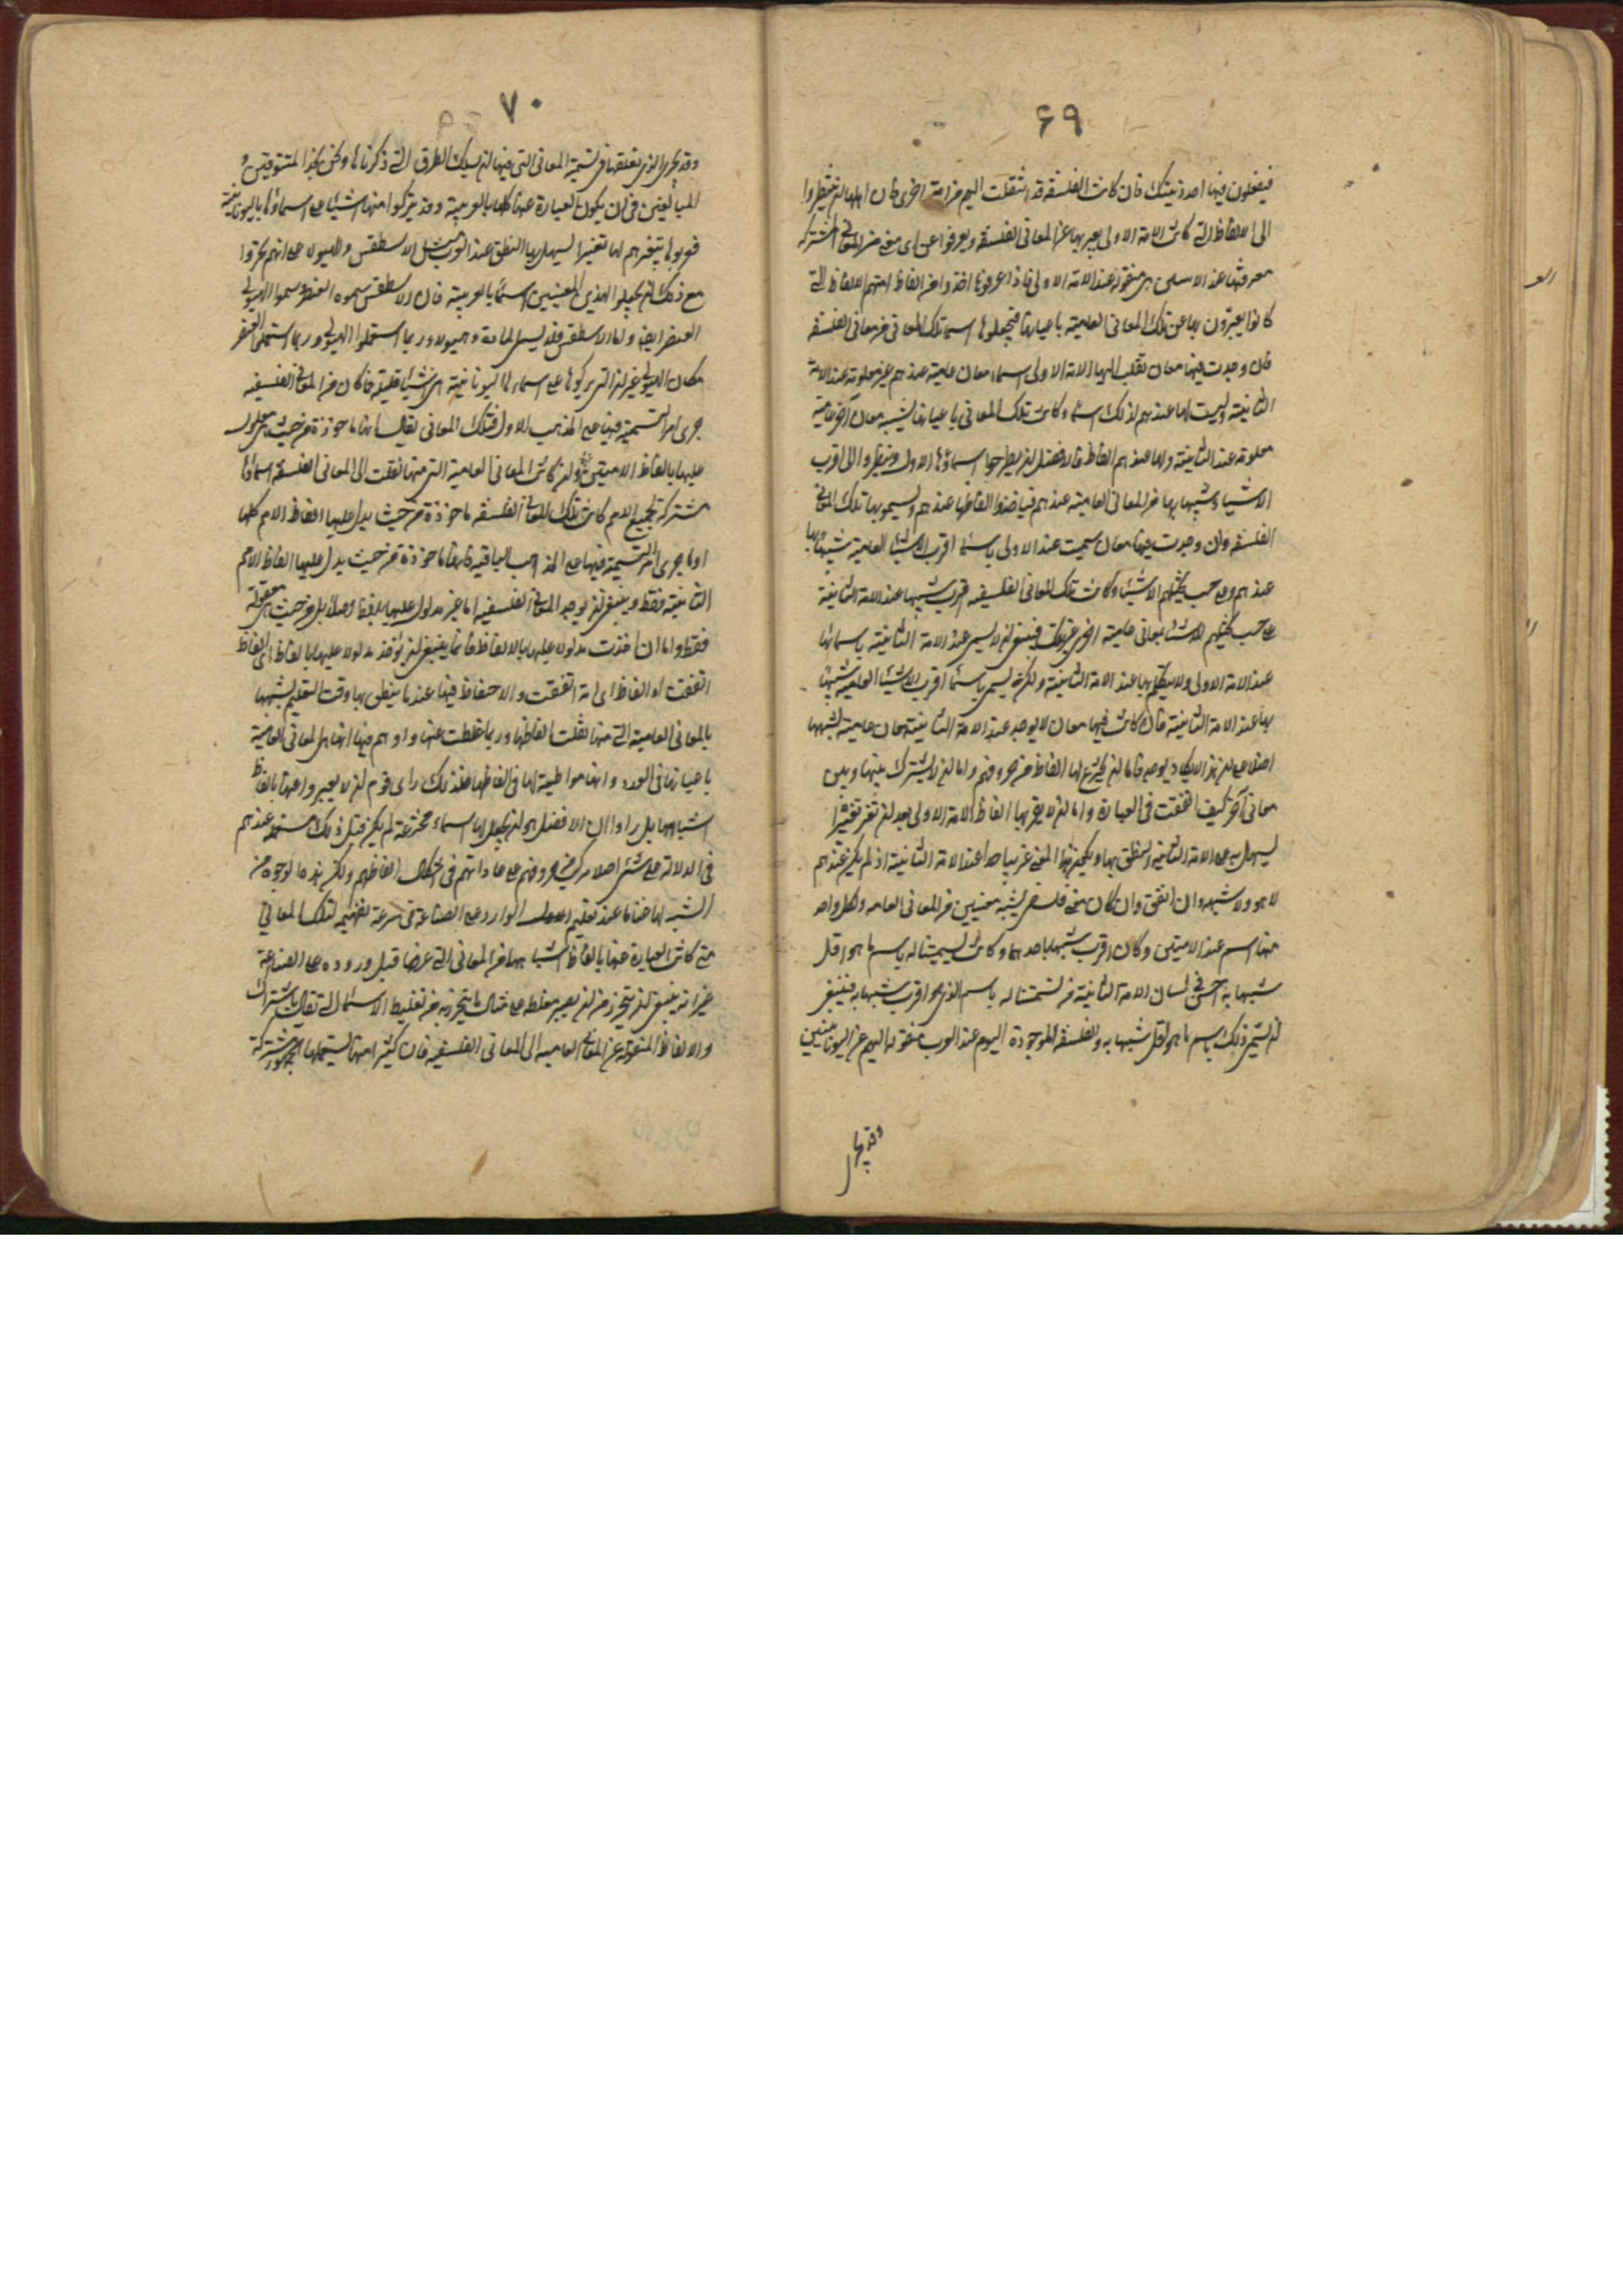 ۶۹
فيفعلون فيها احد ذينك فان كانت الفلسفة قد انتقلت اليهم من امة اخرى فان اهلها ان ينظروا
الى الالفاظ التى كانت الامة الاولى يعبر بها عن المعانى الفلسفة ويعرفوا عن اى معنى من المعانى المشتركة
معرفتها عند الامتين هى منقولة عند الامة الاولى فاذا عرفوها اخذوا من الفاظ امتهم الالفاظ التى
كانوا يعبرون بها عن تلك المعانى العامية باعيانها فيجعلوها اسماء تلك المعانى من معانى الفلسفة
فان وجدت فيها معان نقلت اليها الامة الاولى اسماء معان عامية عندهم غير معلومة عند الامة
الثانية وليست لها عندهم لذلك اسماء وكانت تلك المعانى باعيانها يشبه معان اخر عامية
معلومة عند الثانية ولها عندهم الفاظ فالافضل ان يطرحوا اسماؤها الاول وينظروا الى اقرب
الاشياء شبها بها من المعانى العامية عندهم فياخذوا الفاظها عندهم ويسموا بها تلك المعانى
الفلسفة وان وجدت فيها معان سميت عند الاولى باسماء اقرب الاشياء العامية شبها بها
عندهم وعلى حسب تخيلهم الاشياء وكانت تلك المعانى الفلسفية اقرب شبها عند الامة الثانية
على حسب تخيلهم للاشياء بمعانى عامية اخرى غير تلك فينبغى ان لا يسمى عند الامة الثانية باسمائها
عند الامة الاولى ولا يتكلم بها عند الامة الثانية ولكن يسمى باسماء اقرب الاشياء العامية شبها
بها عند الامة الثانية فان كانت فيها معان لا يوجد عند الامة الثانية معان عامية تشبهها
اصلا على ان هذا لا يكاد يوجد فاما ان يخترع لها الفاظ من حروفهم واما ان لا يشترك بينها وبين
معانى اخر كيف اتفقت فى العبارة واما ان لا يعبر بها الفاظ الامة الاولى بعد ان تغير تغييرا
ليسهل به على الامة الثانية النطق بها ويكون هذا المعنى غريبا جدا عند الامة الثانية اذ لم يكن عندهم
لا هو ولا شبيهه وان اتفق وان كان معنى فلسفى يشبه معنيين من المعانى العامه ولكل واحد
منهما اسم عند الامتين وكان اقرب شبها باحدهما وكانت تسميتنا له باسم ما هو اقل
شبها به احسن فى لسان الامة الثانية من تسميتنا له باسم الذى هو اقرب شبها به فينبغى
ان يسمى ذلك باسم ما هو اقل شبها به والفلسفة الموجودة اليوم عند العرب منقولة اليهم عن اليونانيين
۷۰
وقد تحرى الذى نقلها فى تسمية المعانى التى فيها ان يسلك الطرق التى ذكرناها ونحن نجد المتشوقين و
المبالغين فى ان يكون العبارة عنها كلها بالعربية وقد يتركوا منها اشياء على اسماؤها باليونانية
فعربوها بتغيرهم لها تغييرا ليسهل بها النطق عند العرب مثل الاسطقس والهيولا على انهم تحروا
مع ذلك ان يجعلوا لهذين المعنيين اسماء بالعربية فان الاسطقس سموه العنصر وسموا الهيولى
العنصر ايضا واما الاسطقس فلا يسمى المادة وهيولا وربما استعملوا الهيولى وربما استعملوا العنصر
مكان الهيولى غير ان التى تركوها على اسماءها اليونانية هى اشياء قليلة فما كان من المعانى الفلسفية
جرى امر التسمية فيها على المذهب الاول فتلك المعانى يقال انها ماخوذة من حيث هى مدلول
عليها بالفاظ الامتين وان كانت المعانى العامية التى منها نقلت الى المعانى الفلسفة اسماؤها
مشتركة لجميع الامم كانت تلك المعانى الفلسفة ماخوذة من حيث يدل عليها الفاظ الامم كلها
وما جرى امر التسمية فيها على المذاهب الباقية فانها ماخوذة من حيث يدل عليها الفاظ الامم
الثانية فقط وينبغى ان يوجد المعانى الفلسفية اما غير مدلول عليها بلفظ اصلا بل من حيث هى معقولة
فقط واما ان اخذت مدلولا عليها بالالفاظ فانما ينبغى ان تؤخذ مدلولا عليها بالفاظ اى الفاظ
اتفقت او الفاظ اى امة اتفقت والاحتفاظ فيها عند ما ينطق بها وقت التعليم لشبهها
بالمعانى العامية التى منها نقلت الفاظها وربما غلطت عنها واوهم فيها انها هى المعانى العامية
باعيانها فى العدد وانها مواطية لها فى الفاظها فلذلك راى قوم ان لا يعبروا عنها بالفاظ
اشباهها بل راوا ان الافضل هو ان يجعل لها اسماء مخترعة لم يكن قبل ذلك مستعملة عندهم
فى الدلالة على شئ اصلا مركبة من حروفهم على عاداتهم فى اشكال الفاظهم ولكن هذه الوجوه من
الشبه لها غناء ما عند تعليم الوارد على الصناعة فى سرعة تفهيمه لتلك المعانى
متى كانت العبارة عنها بالفاظ اشباهها من المعانى التى عرفها قبل وروده على الصناعة
غير انه ينبغى ان يتحرز من ان يصير مغلطه على مثال ما يتحرز به من تغليط الاسماء التى تقال باشتراك
والالفاظ المنقولة عن المعانى العامية الى المعانى الفلسفية فان كثيرا منها يستعملها الجمهور مشتركة